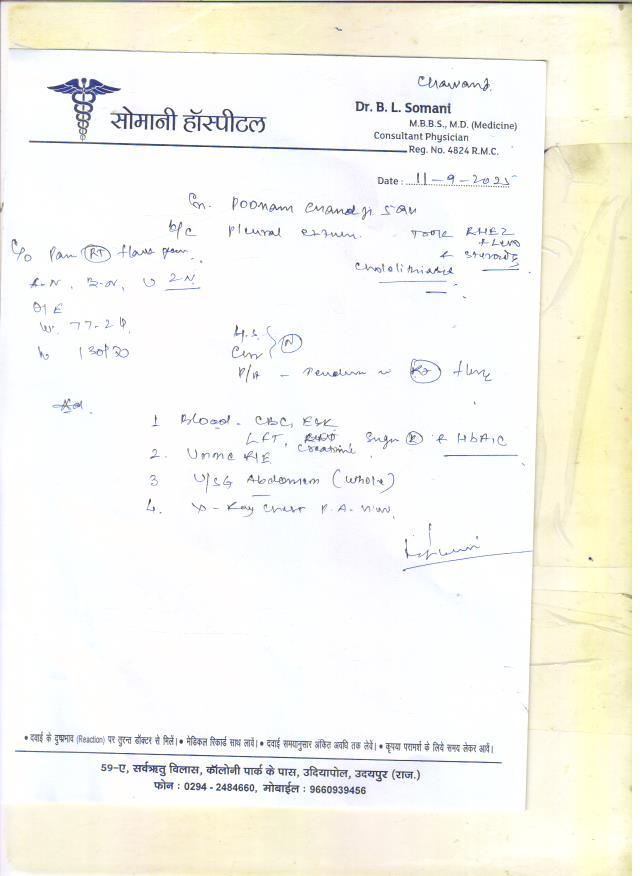 Chawand.
सोमानी हॉस्पीटल
Dr. B. L. Somani
M.B.B.S., M.D. (Medicine)
Consultant Physician
Reg. No. 4824 R.M.C.
Date : 11-9-2025
Poonam Chand Ji
Pleural Took RHEZ
& Steroids
C/o Pain (RT) flank pain
Cholelithiasis
O/E
W. 77-2
130/70
H.S.
(N)
P/A - (RT) flank
Ad.
1 Blood. CBC, ESR
LFT, Sugar (R) & HbA1C
Creatinine
2. Urine R/E
3 U/SG Abdomen (Whole)
4. X-Ray Chest P.A. View.
• दवाई के दुष्प्रभाव (Reaction) पर तुरन्त डॉक्टर से मिलें। • मेडिकल रिकार्ड साथ लावें। • दवाई समयानुसार अंकित अवधि तक लेवें। • कृपया परामर्श के लिये समय लेकर आवें।
59-ए, सर्वऋतु विलास, कॉलोनी पार्क के पास, उदियापोल, उदयपुर (राज.)
फोन : 0294 - 2484660, मोबाईल : 9660939456